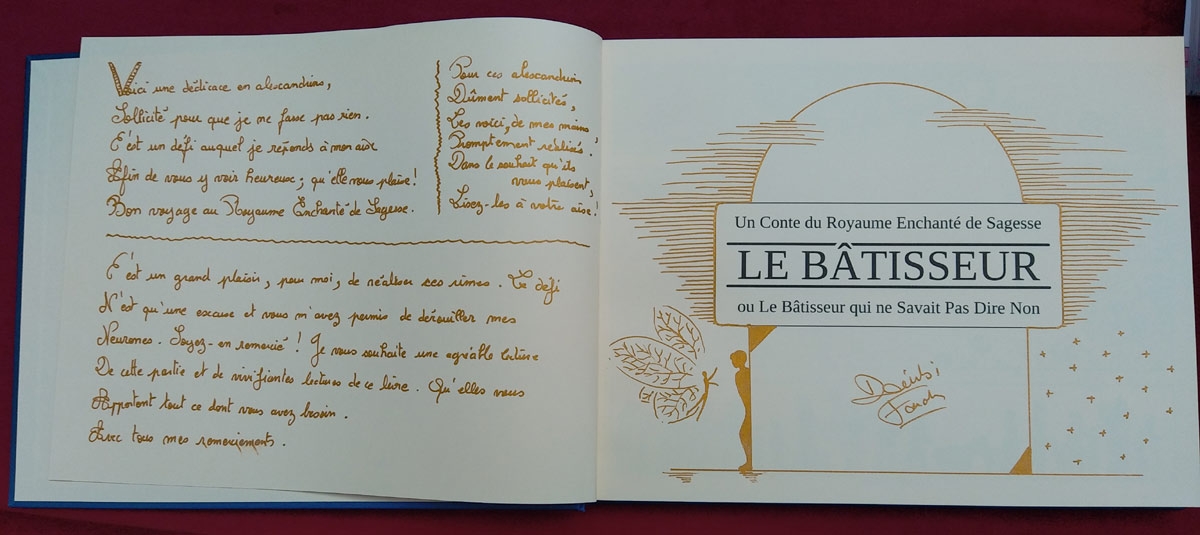 Voici une dédicace en alexcandrins,
Sollicité pour que je ne fasse pas rien.
C'est un défi auquel je réponds à mon aise
Afin de vous y voir heureuse ; qu'elle vous plaise !
Bon voyage au Royaume Enchanté de Sagesse.
Pour ces alexcandrin
Dûment sollicités,
Les voici, de mes mains,
Promptement réalisés.
Dans le souhait qu'ils
vous plaisent,
Lisez-les à votre aise !
C'est un grand plaisir, pour moi, de réaliser ces rimes. Ce défi
N'est qu'une excuse et vous m'avez permis de dérouiller mes
Neurones. Soyez-en remercié ! Je vous souhaite une agréable lecture
De cette partie et de vivifiantes lectures de ce livre. Qu'elles vous
Apportent tout ce dont vous avez besoin.
Avec tous mes remerciements.
Un Conte du Royaume Enchanté de Sagesse
LE BÂTISSEUR
ou Le Bâtisseur qui ne Savait Pas Dire Non